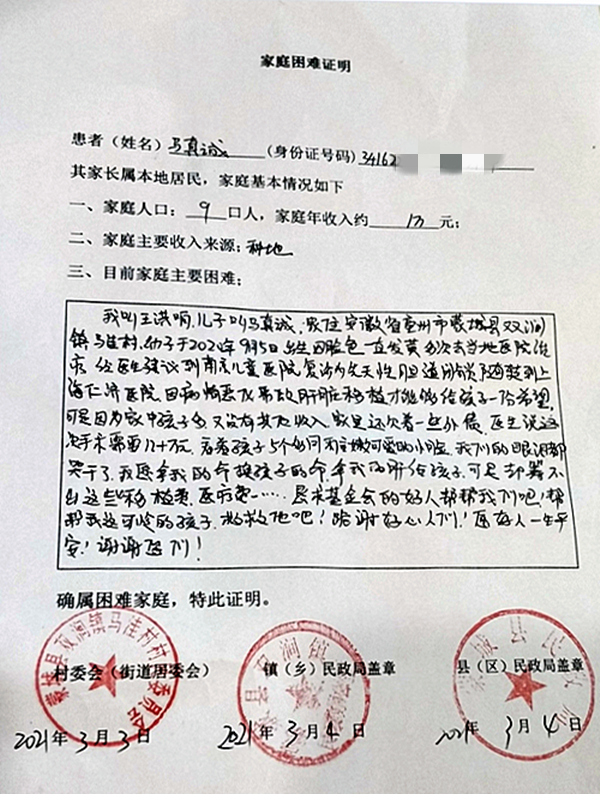 家庭困难证明
患者（姓名）马真诚 (身份证号码) 34162
其家长属本地居民，家庭基本情况如下
一、家庭人口：9口人，家庭年收入约 1万 元；
二、家庭主要收入来源：种地
三、目前家庭主要困难；
我叫王洪啊，儿子叫马真诚，家住安徽省亳州市蒙城县双涧
镇马佳村，幼子于2020年9月5日出生因脸色一直发黄多次去当地医院治
疗，经医生建议到南京儿童医院复诊为先天性胆道闭锁，随赶到上
海仁济医院，因病情恶化导致肝脏移植才能够给孩子一份希望，
可是因为家中孩子多又没有其他收入家里还欠着一些外债，医生说这
次手术需要12十万元，看着孩子5个多月可爱的小脸，我们的眼泪都
哭干了，我愿拿我的命换孩子的命，拿我的肝给孩子，可是却拿不
出这些移植费，医疗费……，恳求基金会的好人帮帮我们吧！帮
帮我这可怜的孩子，救救他吧！跪谢好心人们！愿好人一生平
安！谢谢您们！
确属困难家庭，特此证明。
村委会（街道居委会） 镇（乡）民政局盖章 县（区）民政局盖章
蒙城县双涧镇马佳村村民委员会
2021年3月3日 2021年3月4日 2021年3月4日